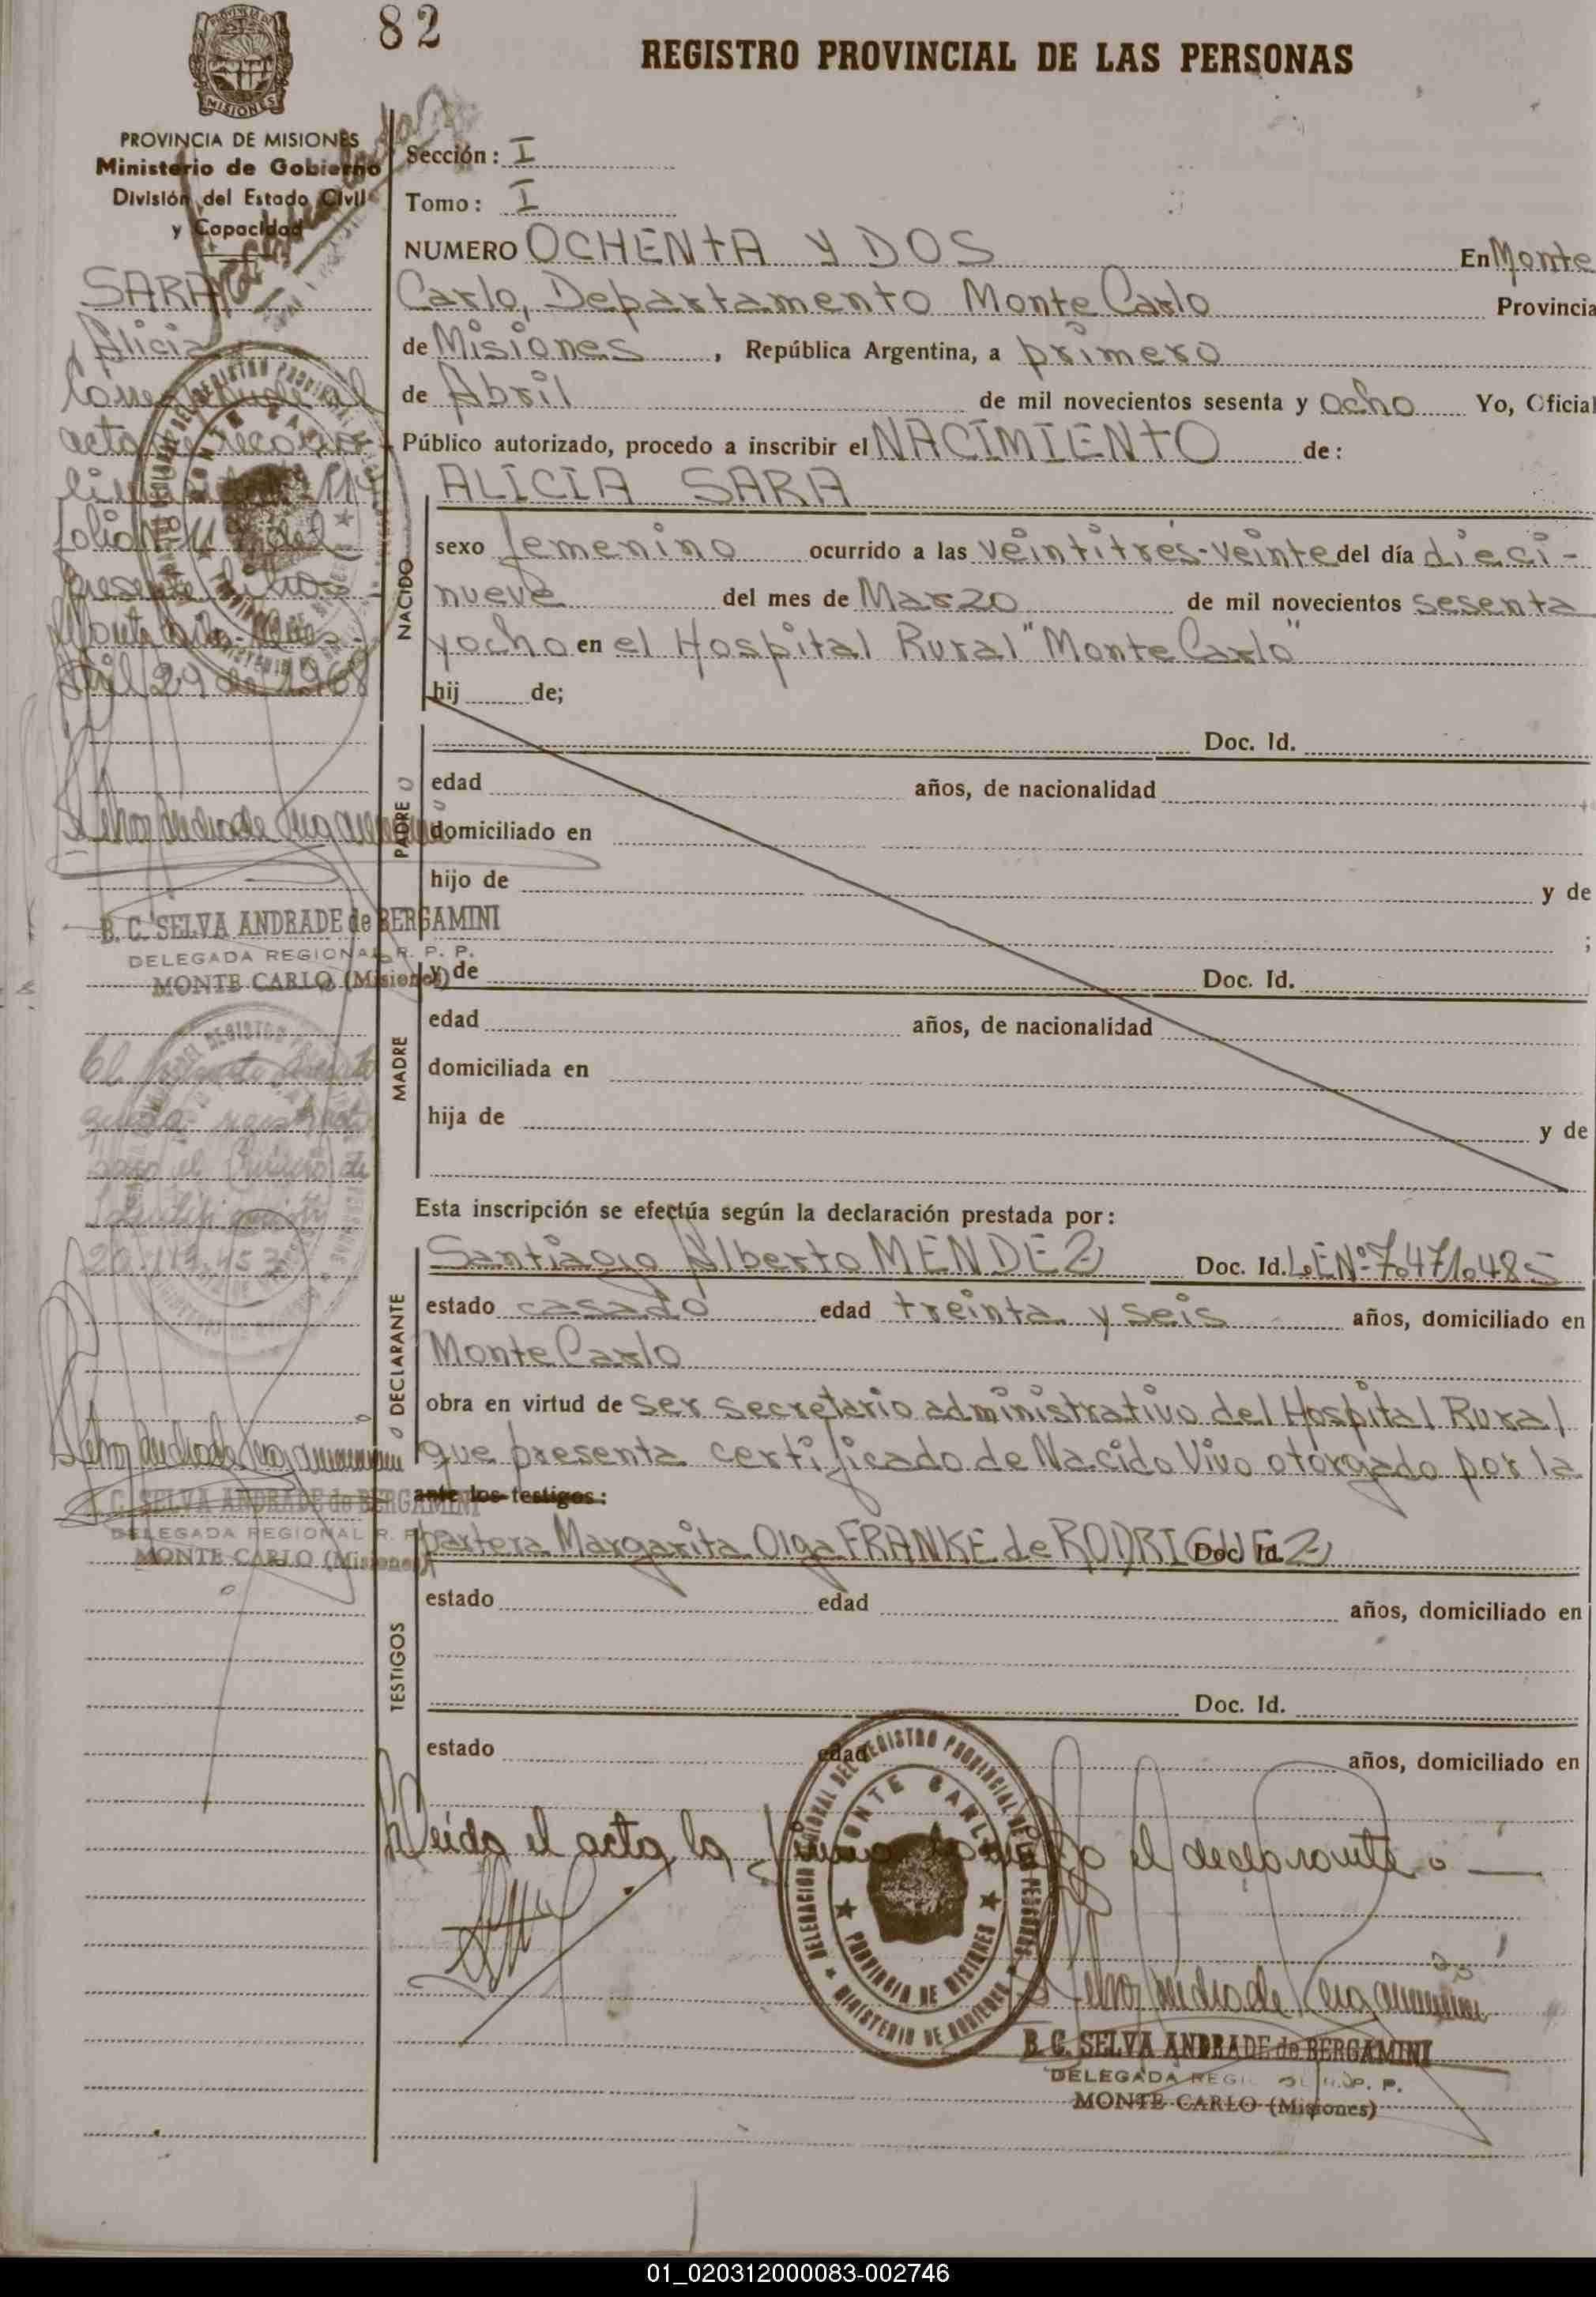 82
REGISTRO PROVINCIAL DE LAS PERSONAS
MISIONES
PROVINCIA DE MISIONES
Ministerio de Gobierno
División del Estado Civil
y Capacidad
Sección: I
Tomo: I
NUMERO OCHENTA Y DOS En Monte
Carlo, Departamento Monte Carlo Provincia
de Misiones, República Argentina, a primero
de Abril de mil novecientos sesenta y ocho Yo, Oficial
Público autorizado, procedo a inscribir el NACIMIENTO de:
ALICIA SARA
NACIDO
sexo femenino ocurrido a las veintitrés-veinte del día dieci-
nueve del mes de Marzo de mil novecientos sesenta
y ocho en el Hospital Rural "Monte Carlo"
hij de;
PADRE
Doc. Id.
edad años, de nacionalidad
domiciliado en
hijo de y de
;
MADRE
y de Doc. Id.
edad años, de nacionalidad
domiciliada en
hija de y de
Esta inscripción se efectúa según la declaración prestada por:
DECLARANTE
Santiago Alberto MENDEZ Doc. Id. L.E.Nº 7.471.485
estado casado edad treinta y seis años, domiciliado en
Monte Carlo
obra en virtud de ser secretario administrativo del Hospital Rural
que presenta certificado de Nacido Vivo otorgado por la
ante los testigos:
partera Margarita Olga FRANKE de RODRIGUEZ Doc. Id.
TESTIGOS
estado edad años, domiciliado en
Doc. Id.
estado edad años, domiciliado en
Leída el acta, la firma conmigo el declarante.
DELEGACION REGIONAL DEL REGISTRO PROVINCIAL DE LAS PERSONAS
MONTE CARLO
PROVINCIA DE MISIONES
MINISTERIO DE GOBIERNO
B. C. SELVA ANDRADE de BERGAMINI
DELEGADA REGIONAL R. P. P.
MONTE CARLO (Misiones)
SARA
Alicia
Corresponde al
acta de recono
cimiento 114
folio 114 del
presente libro
Monte Carlo
Abril 29 de 1968
B. C. SELVA ANDRADE de BERGAMINI
DELEGADA REGIONAL R. P. P.
MONTE CARLO (Misiones)
El presente
queda registrado
para el
20.119.453
B. C. SELVA ANDRADE de BERGAMINI
DELEGADA REGIONAL R. P. P.
MONTE CARLO (Misiones)
01_020312000083-002746